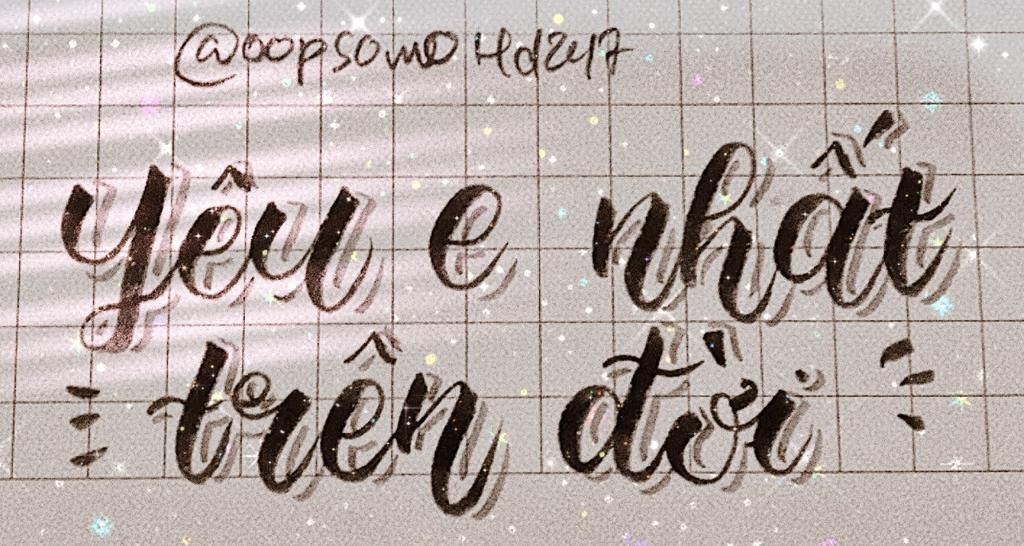 @oopsomo4d247
yêu e nhất
trên đời